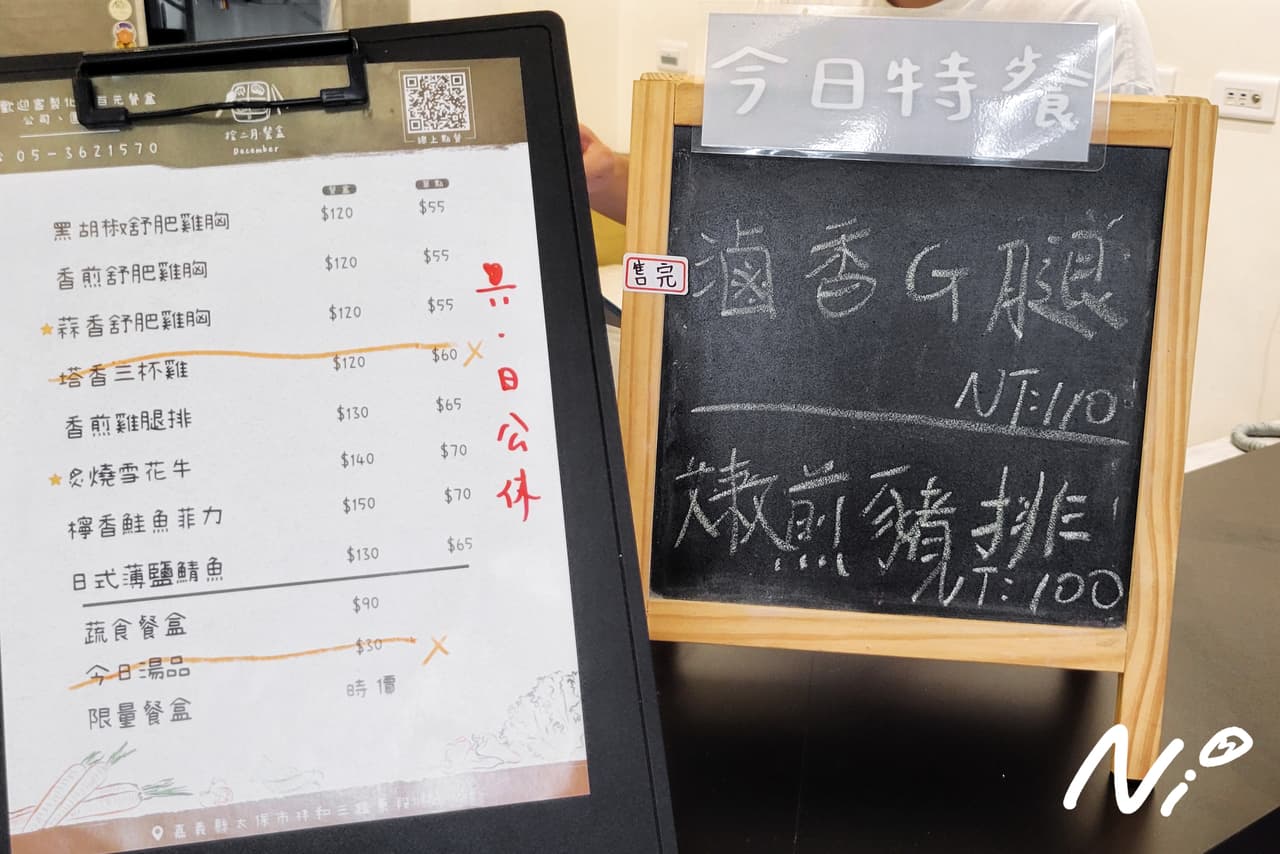 歡迎客製化 百元餐盒
公司、
05-3621570
拾二月餐盒
December
線上點餐
餐盒 單點
黑胡椒舒肥雞胸 $120 $55
香煎舒肥雞胸 $120 $55
蒜香舒肥雞胸 $120 $55
塔香三杯雞 $120 $60 X
香煎雞腿排 $130 $65
炙燒雪花牛 $140 $70
檸香鮭魚菲力 $150 $70
日式薄鹽鯖魚 $130 $65
蔬食餐盒 $90
今日湯品 $30 X
限量餐盒 時價
日公休
嘉義縣太保市祥和三路東段
今日特餐
售完
滷香G腿
NT:110
嫩煎豬排
NT:100
Ni